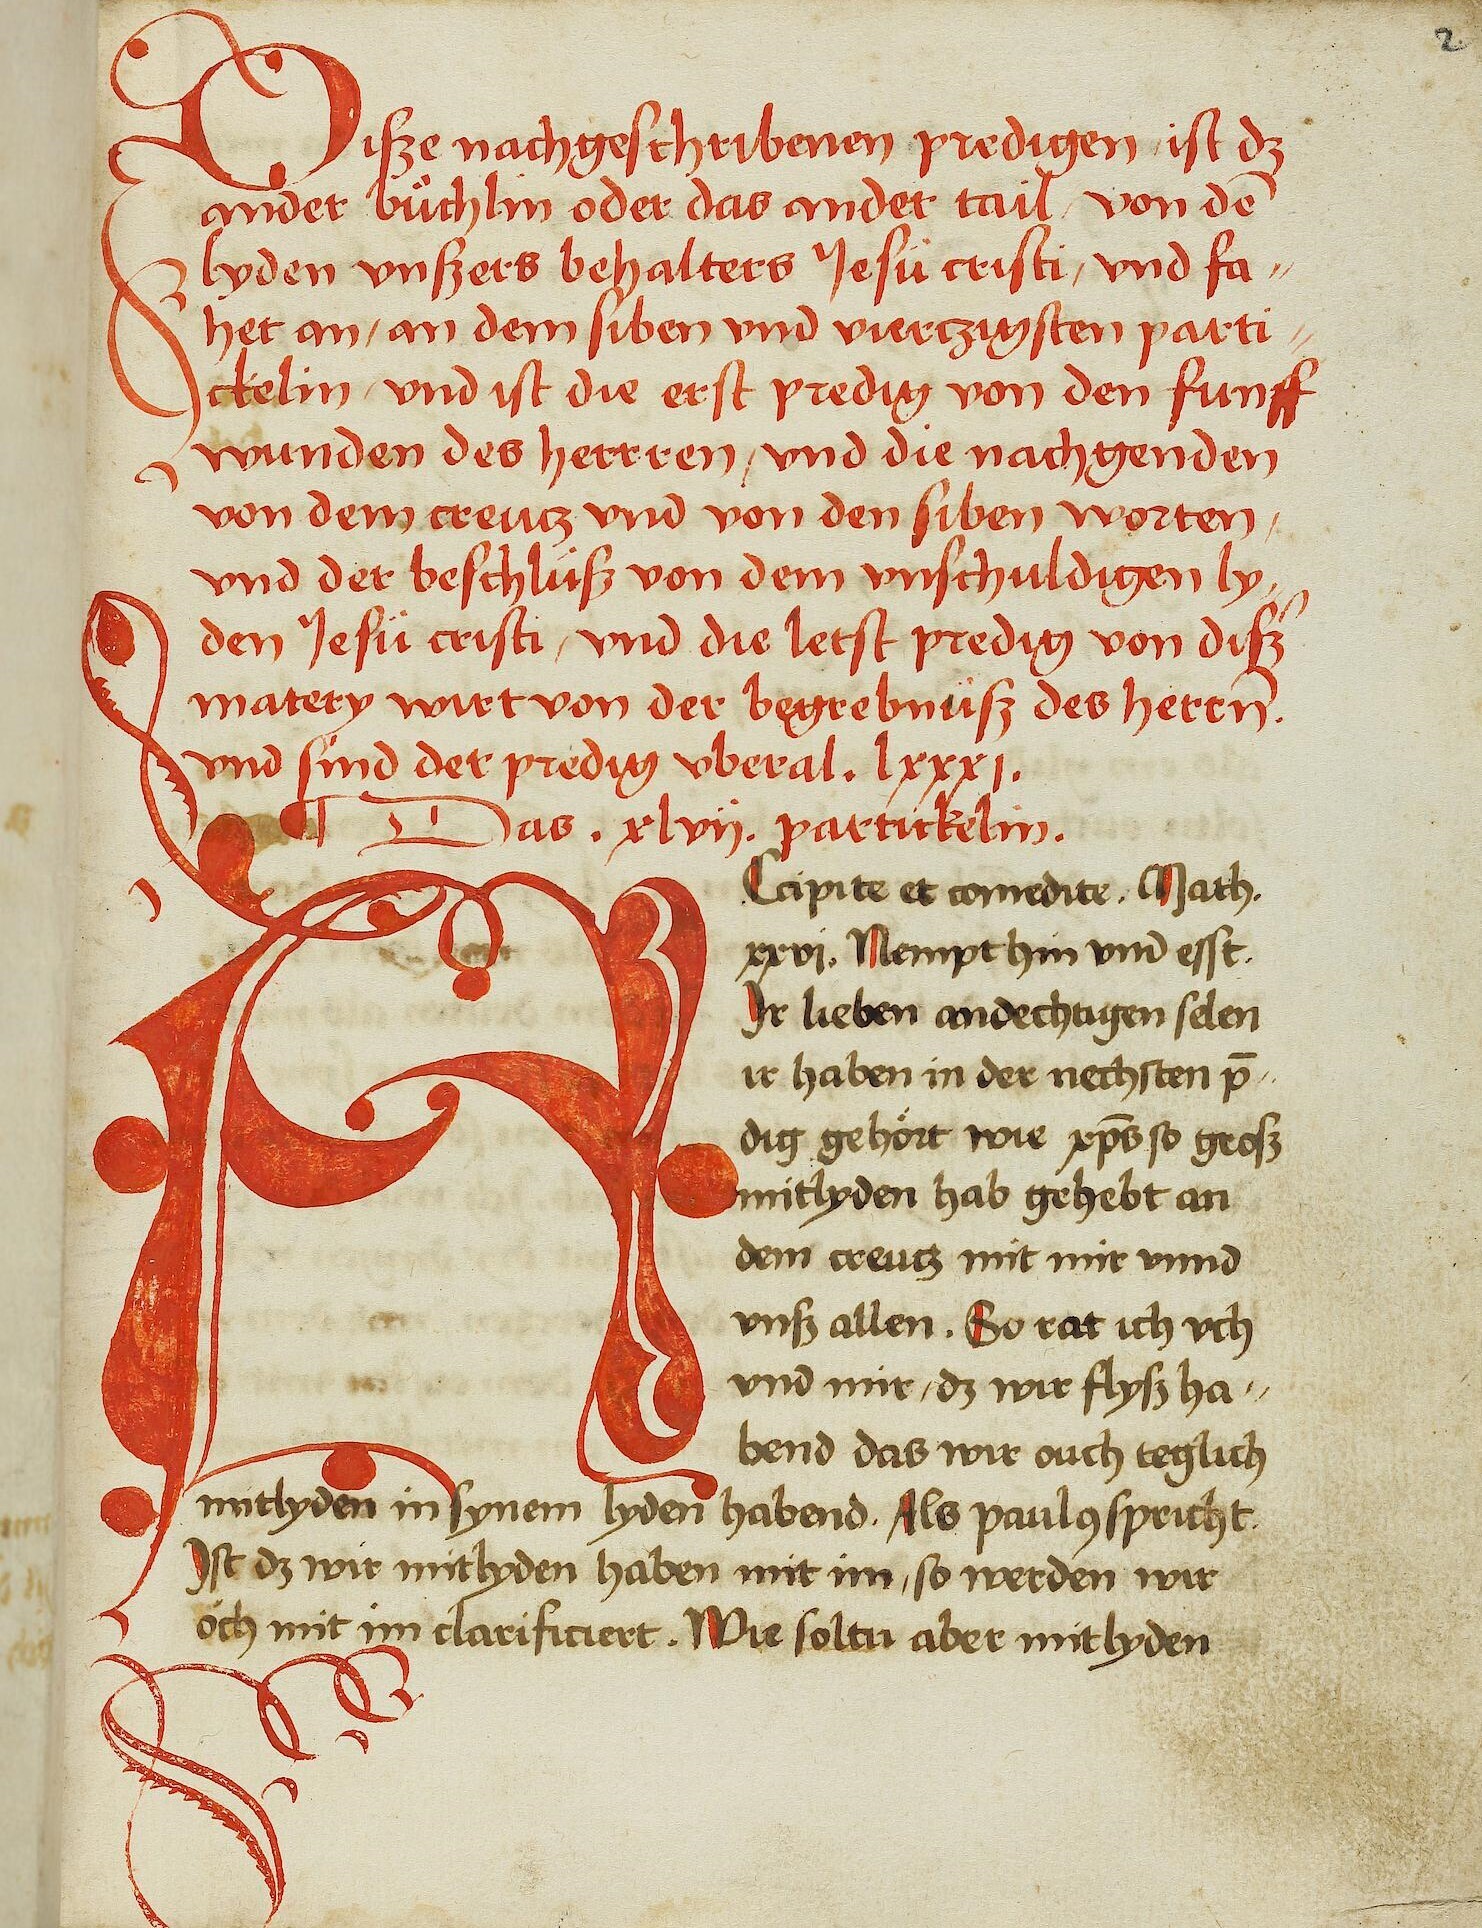 2.
Disze nachgeschribenen predigen / ist dz
ander bůchlin oder das ander tail / von dē
lyden vnszers behalters Jesu cristi / vnd fa-
het an / an dem siben vnd vierczigsten parti-
ckelin / vnd ist die erst predig von den funff
wunden des herrren / vnd die nachgenden
von dem creucz vnd von den siben worten /
vnd der beschlusz von dem vnschuldigen ly-
den Jesu cristi / vnd die letst predig von disz
matery wirt von der begrebnusz des herrn̄.
vnd sind der predig vberal. lxxxj.
Das. xlvij. partickelin.
ACcipite et comedite. Math.
xxvj. Nempt hin vnd esst.
Ir lieben andechtigen selen
ir haben in der nechsten p̄-
dig gehört wie xp̄s so grosz
mitlyden hab gehebt an
dem creucz mit mir vnnd
vnsz allen. So rat ich vch
vnd mir / dz wir flysz ha-
bend das wir ouch teglich
mitlyden in synem lyden habend. Als paulꝰ spricht.
Ist dz wir mitlyden haben mit im / so werden wir
öch mit im clarificiert. Wie soltu aber mitlyden